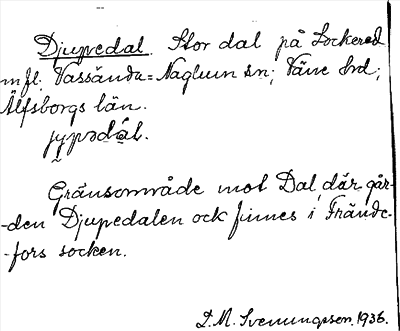 Djupedal. Stor dal på Lockered
m fl. Vassända=Naglum sn; Väne hrd;
Älfsborgs län.
jypədál.
Gränsområde mot Dal, där går-
-den Djupedalen ock finnes i Frände-
-fors socken.
D. M. Svenungsson. 1936.